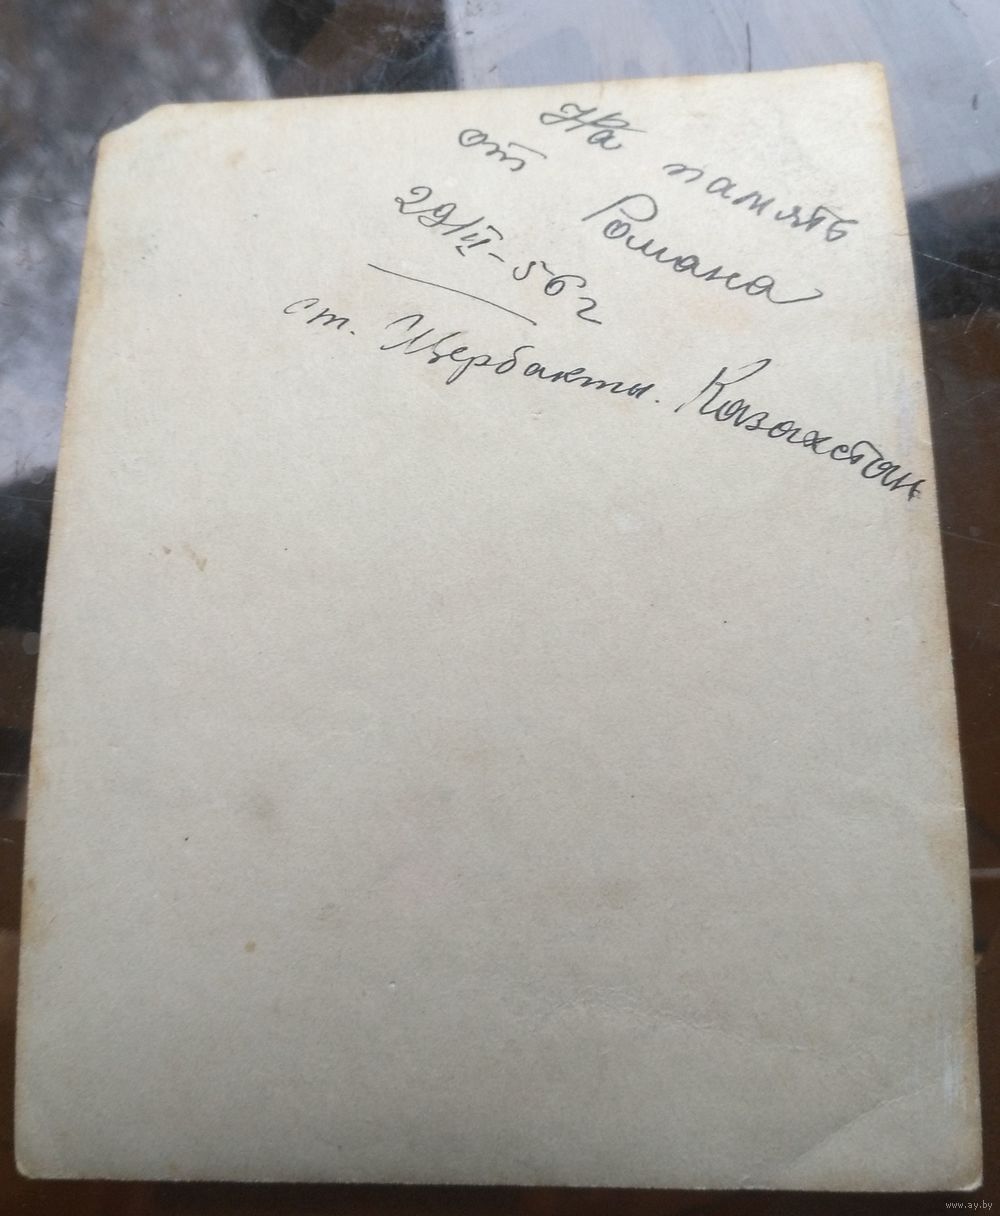 На память
от Романа
29/II-56г
ст. Щербакты. Казахстан
www.ay.by